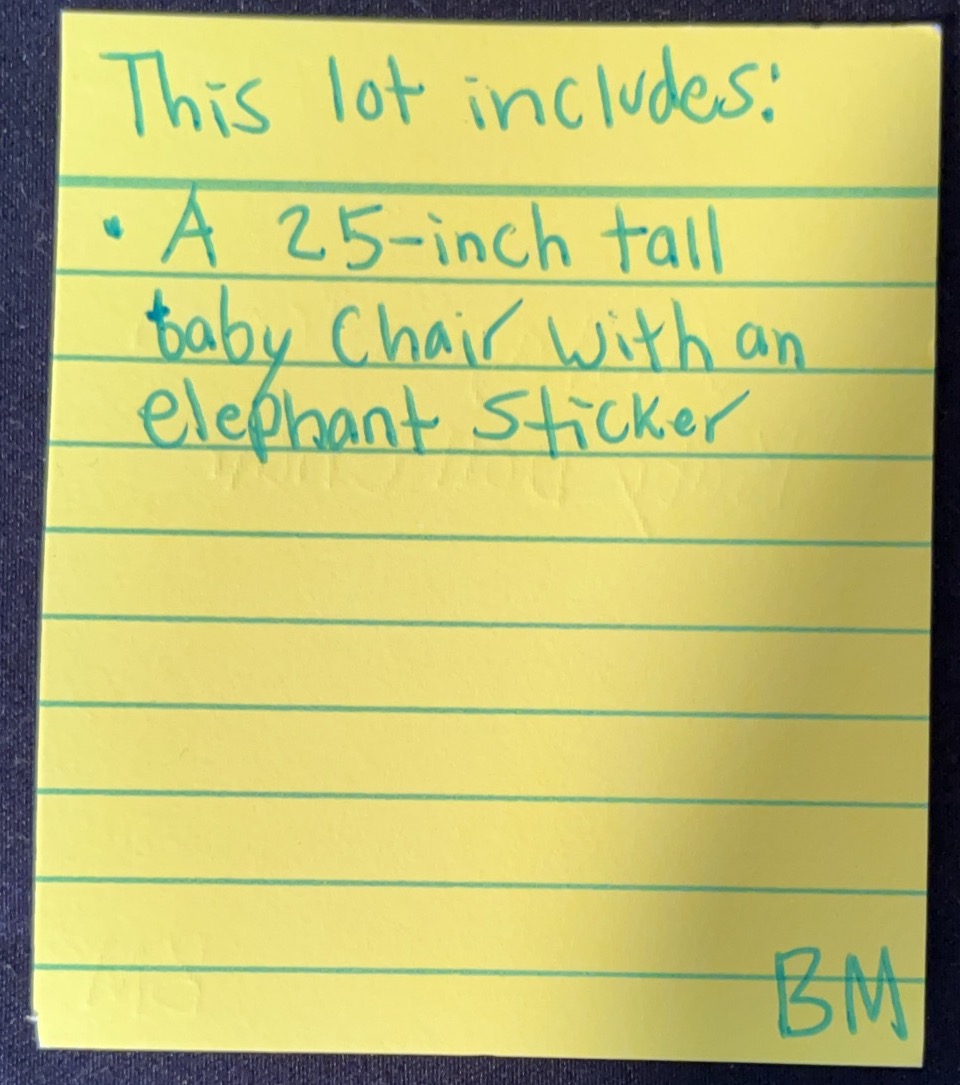 This lot includes:
• A 25-inch tall
baby Chair with an
elephant Sticker
BM